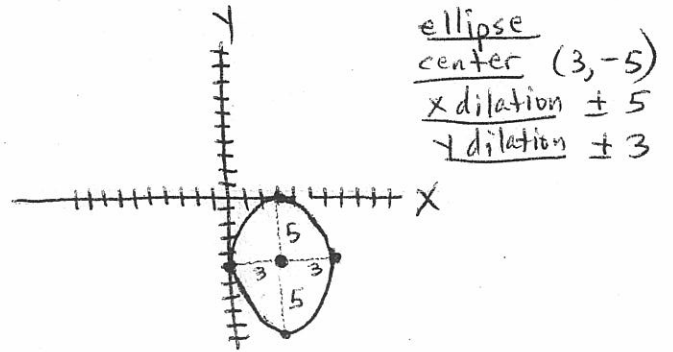 Y
ellipse
center (3,-5)
x dilation ± 5
y dilation ± 3
X
5
3 3
5